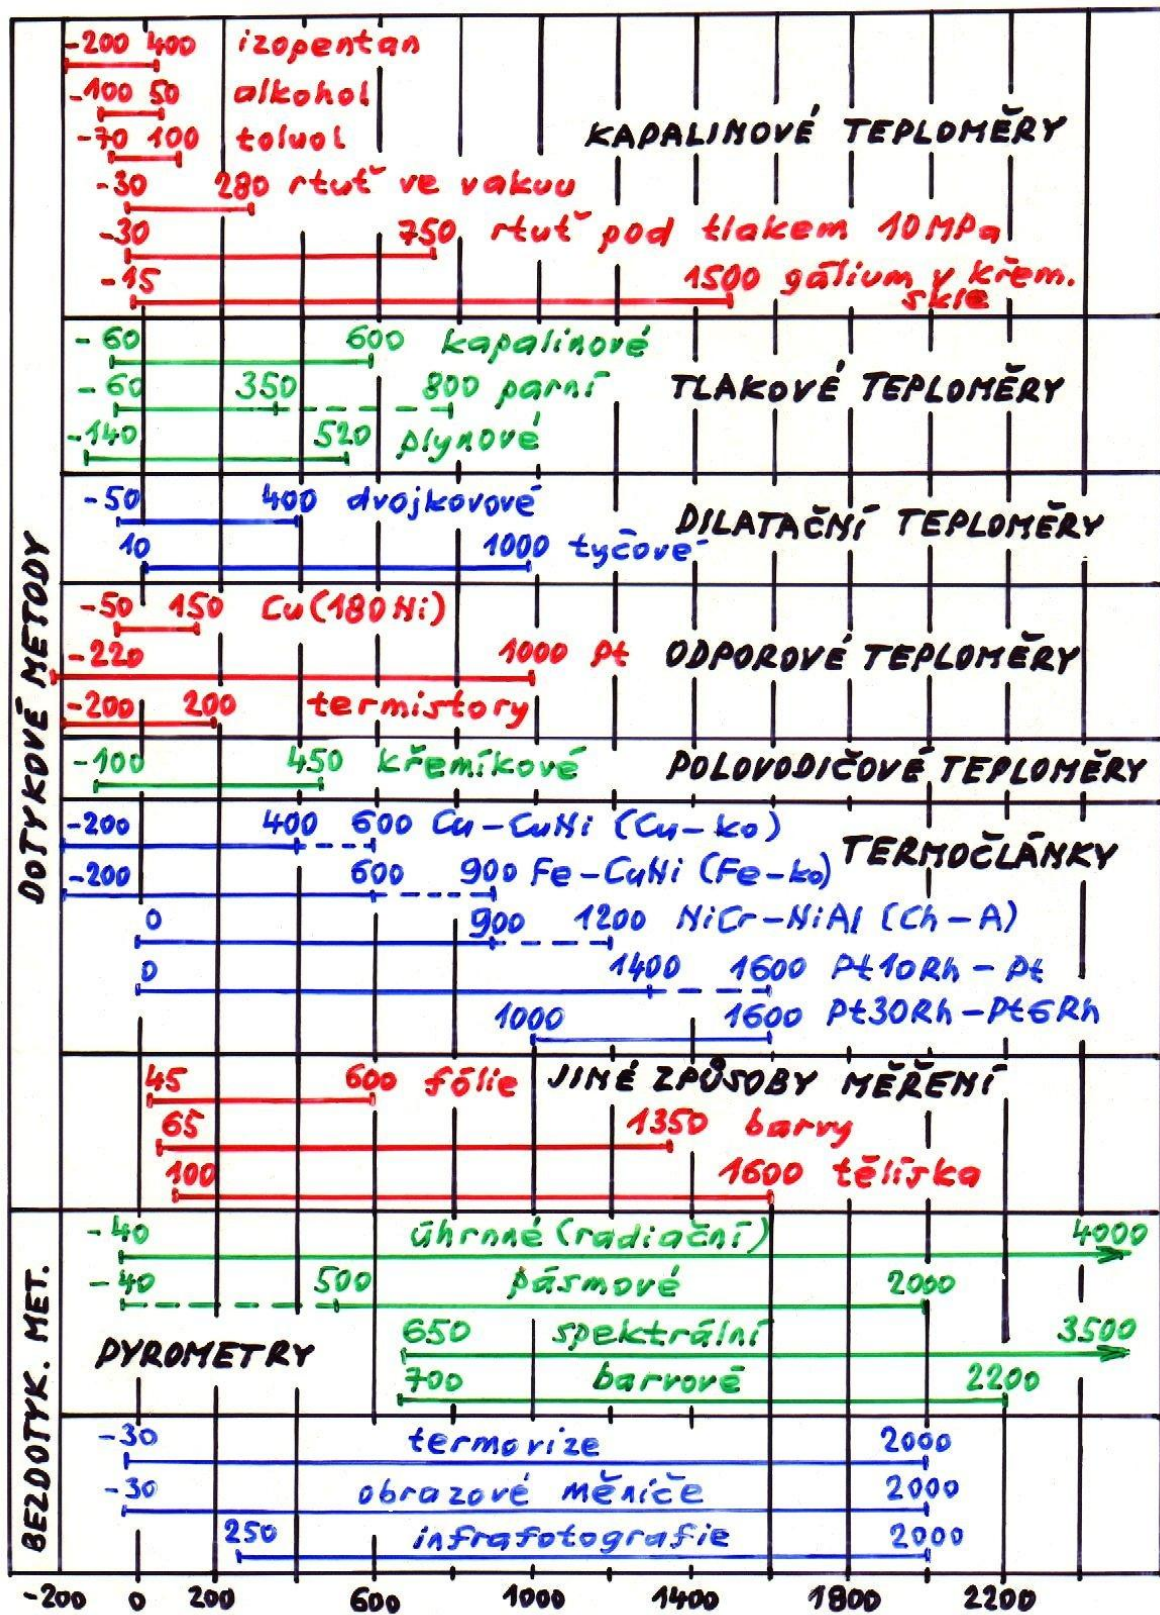 -200 400 izopentan
-100 50 alkohol
-70 100 toluol
KAPALINOVÉ TEPLOMĚRY
-30 280 rtuť ve vakuu
-30 750 rtuť pod tlakem 10 MPa
-15 1500 gálium v křem. skle
-60 600 kapalinové
-60 350 800 parní
TLAKOVÉ TEPLOMĚRY
-140 520 plynové
-50 400 dvojkovové
DILATAČNÍ TEPLOMĚRY
10 1000 tyčové
-50 150 Cu (180 Ni)
-220 1000 Pt
ODPOROVÉ TEPLOMĚRY
-200 200 termistory
-100 450 křemíkové
POLOVODIČOVÉ TEPLOMĚRY
-200 400 600 Cu-CuNi (Cu-ko)
TERMOČLÁNKY
-200 600 900 Fe-CuNi (Fe-ko)
0 900 1200 NiCr-NiAl (Ch-A)
0 1400 1600 Pt10Rh-Pt
1000 1600 Pt30Rh-Pt6Rh
DOTYKOVÉ METODY
45 600 fólie
JINÉ ZPŮSOBY MĚŘENÍ
65 1350 barvy
100 1600 tělíska
-40 úhrnné (radiační) 4000
-40 500 pásmové 2000
650 spektrální 3500
PYROMETRY
700 barvové 2200
-30 termovize 2000
-30 obrazové měniče 2000
250 infrafotografie 2000
BEZDOTYK. MET.
-200 0 200 600 1000 1400 1800 2200